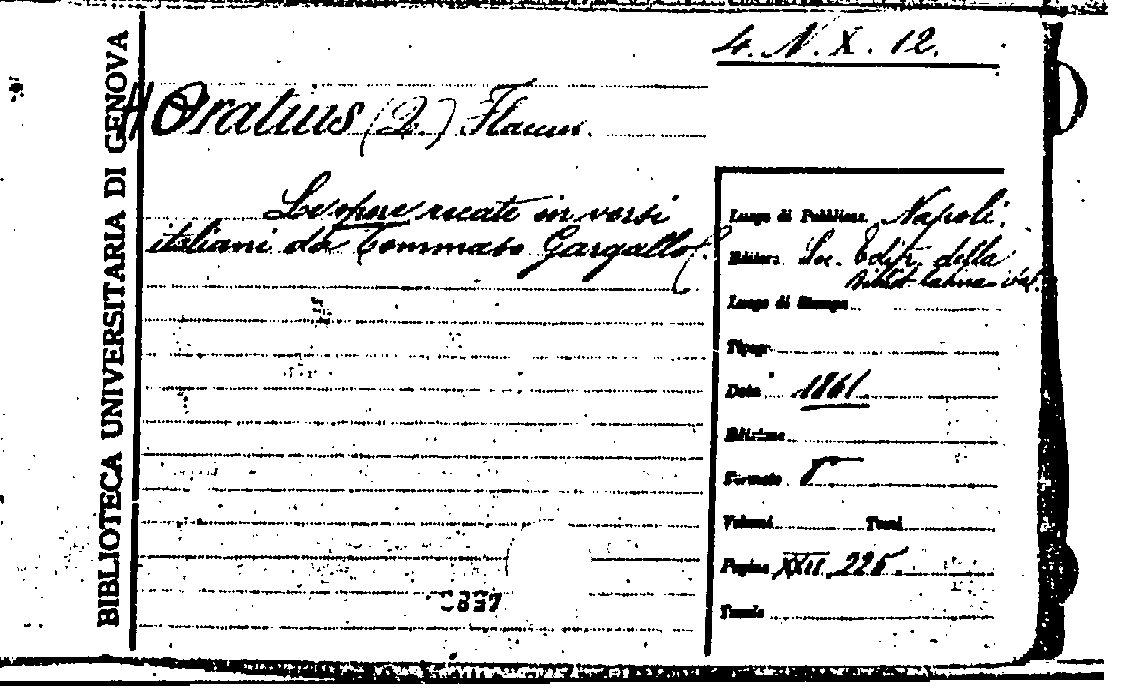 4. N. X. 12.
BIBLIOTECA UNIVERSITARIA DI GENOVA
Horatius (Q.) Flaccus.
Le opere recate in versi
italiani da Tommaso Gargallo.
Luogo di Pubblicaz. Napoli.
Editore Soc. Edit. della
Bibliot. latina-ital.
Luogo di Stampa
Tipogr.
Data 1861
Edizione
Formato 8°
Volumi Tomi
Pagine XXII, 225.
Tavole
0837